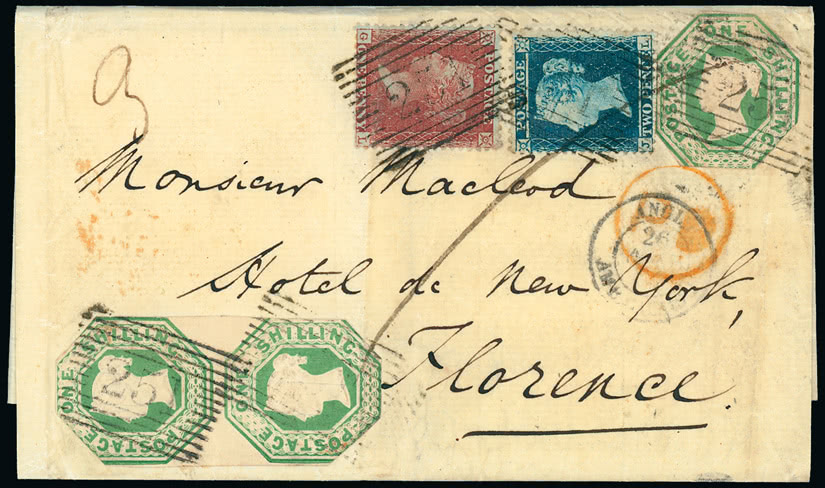 POSTAGE
ONE PENNY
POSTAGE
TWO PENCE
L
J
POSTAGE ONE SHILLING
25
Monsieur Macleod
ANGL.
26
Hotel de New York,
Florence.
ONE SHILLING
POSTAGE
25
ONE SHILLING
POSTAGE